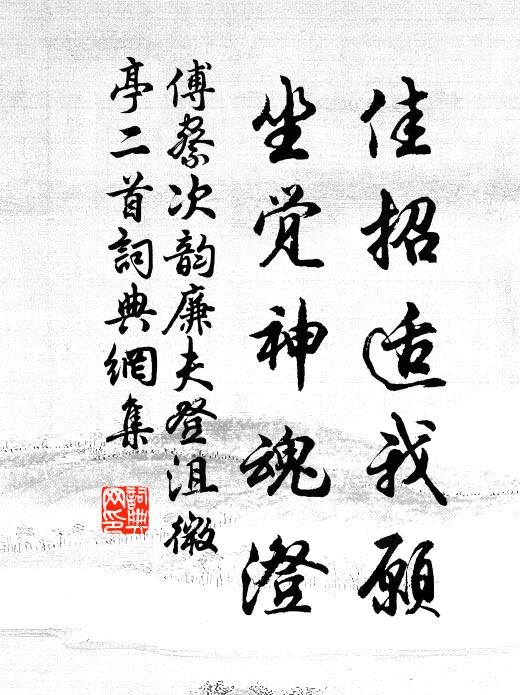 佳招适我願
坐觉神魂澄
傅察次韵廉夫登沮徼
亭二首詞典網集
詞典
网印